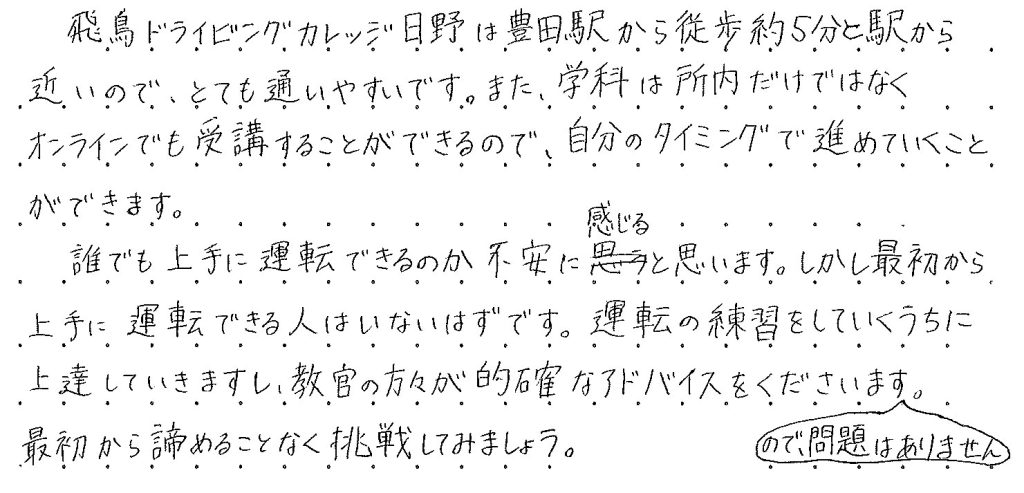 飛鳥ドライビングカレッジ日野は豊田駅から徒歩約5分と駅から
近いので、とても通いやすいです。また、学科は所内だけではなく
オンラインでも受講することができるので、自分のタイミングで進めていくこと
ができます。
感じる
誰でも上手に運転できるのか不安に思うと思います。しかし最初から
上手に運転できる人はいないはずです。運転の練習をしていくうちに
上達していきますし、教官の方々が的確なアドバイスをくださいます。
最初から諦めることなく挑戦してみましょう。
ので、問題はありません